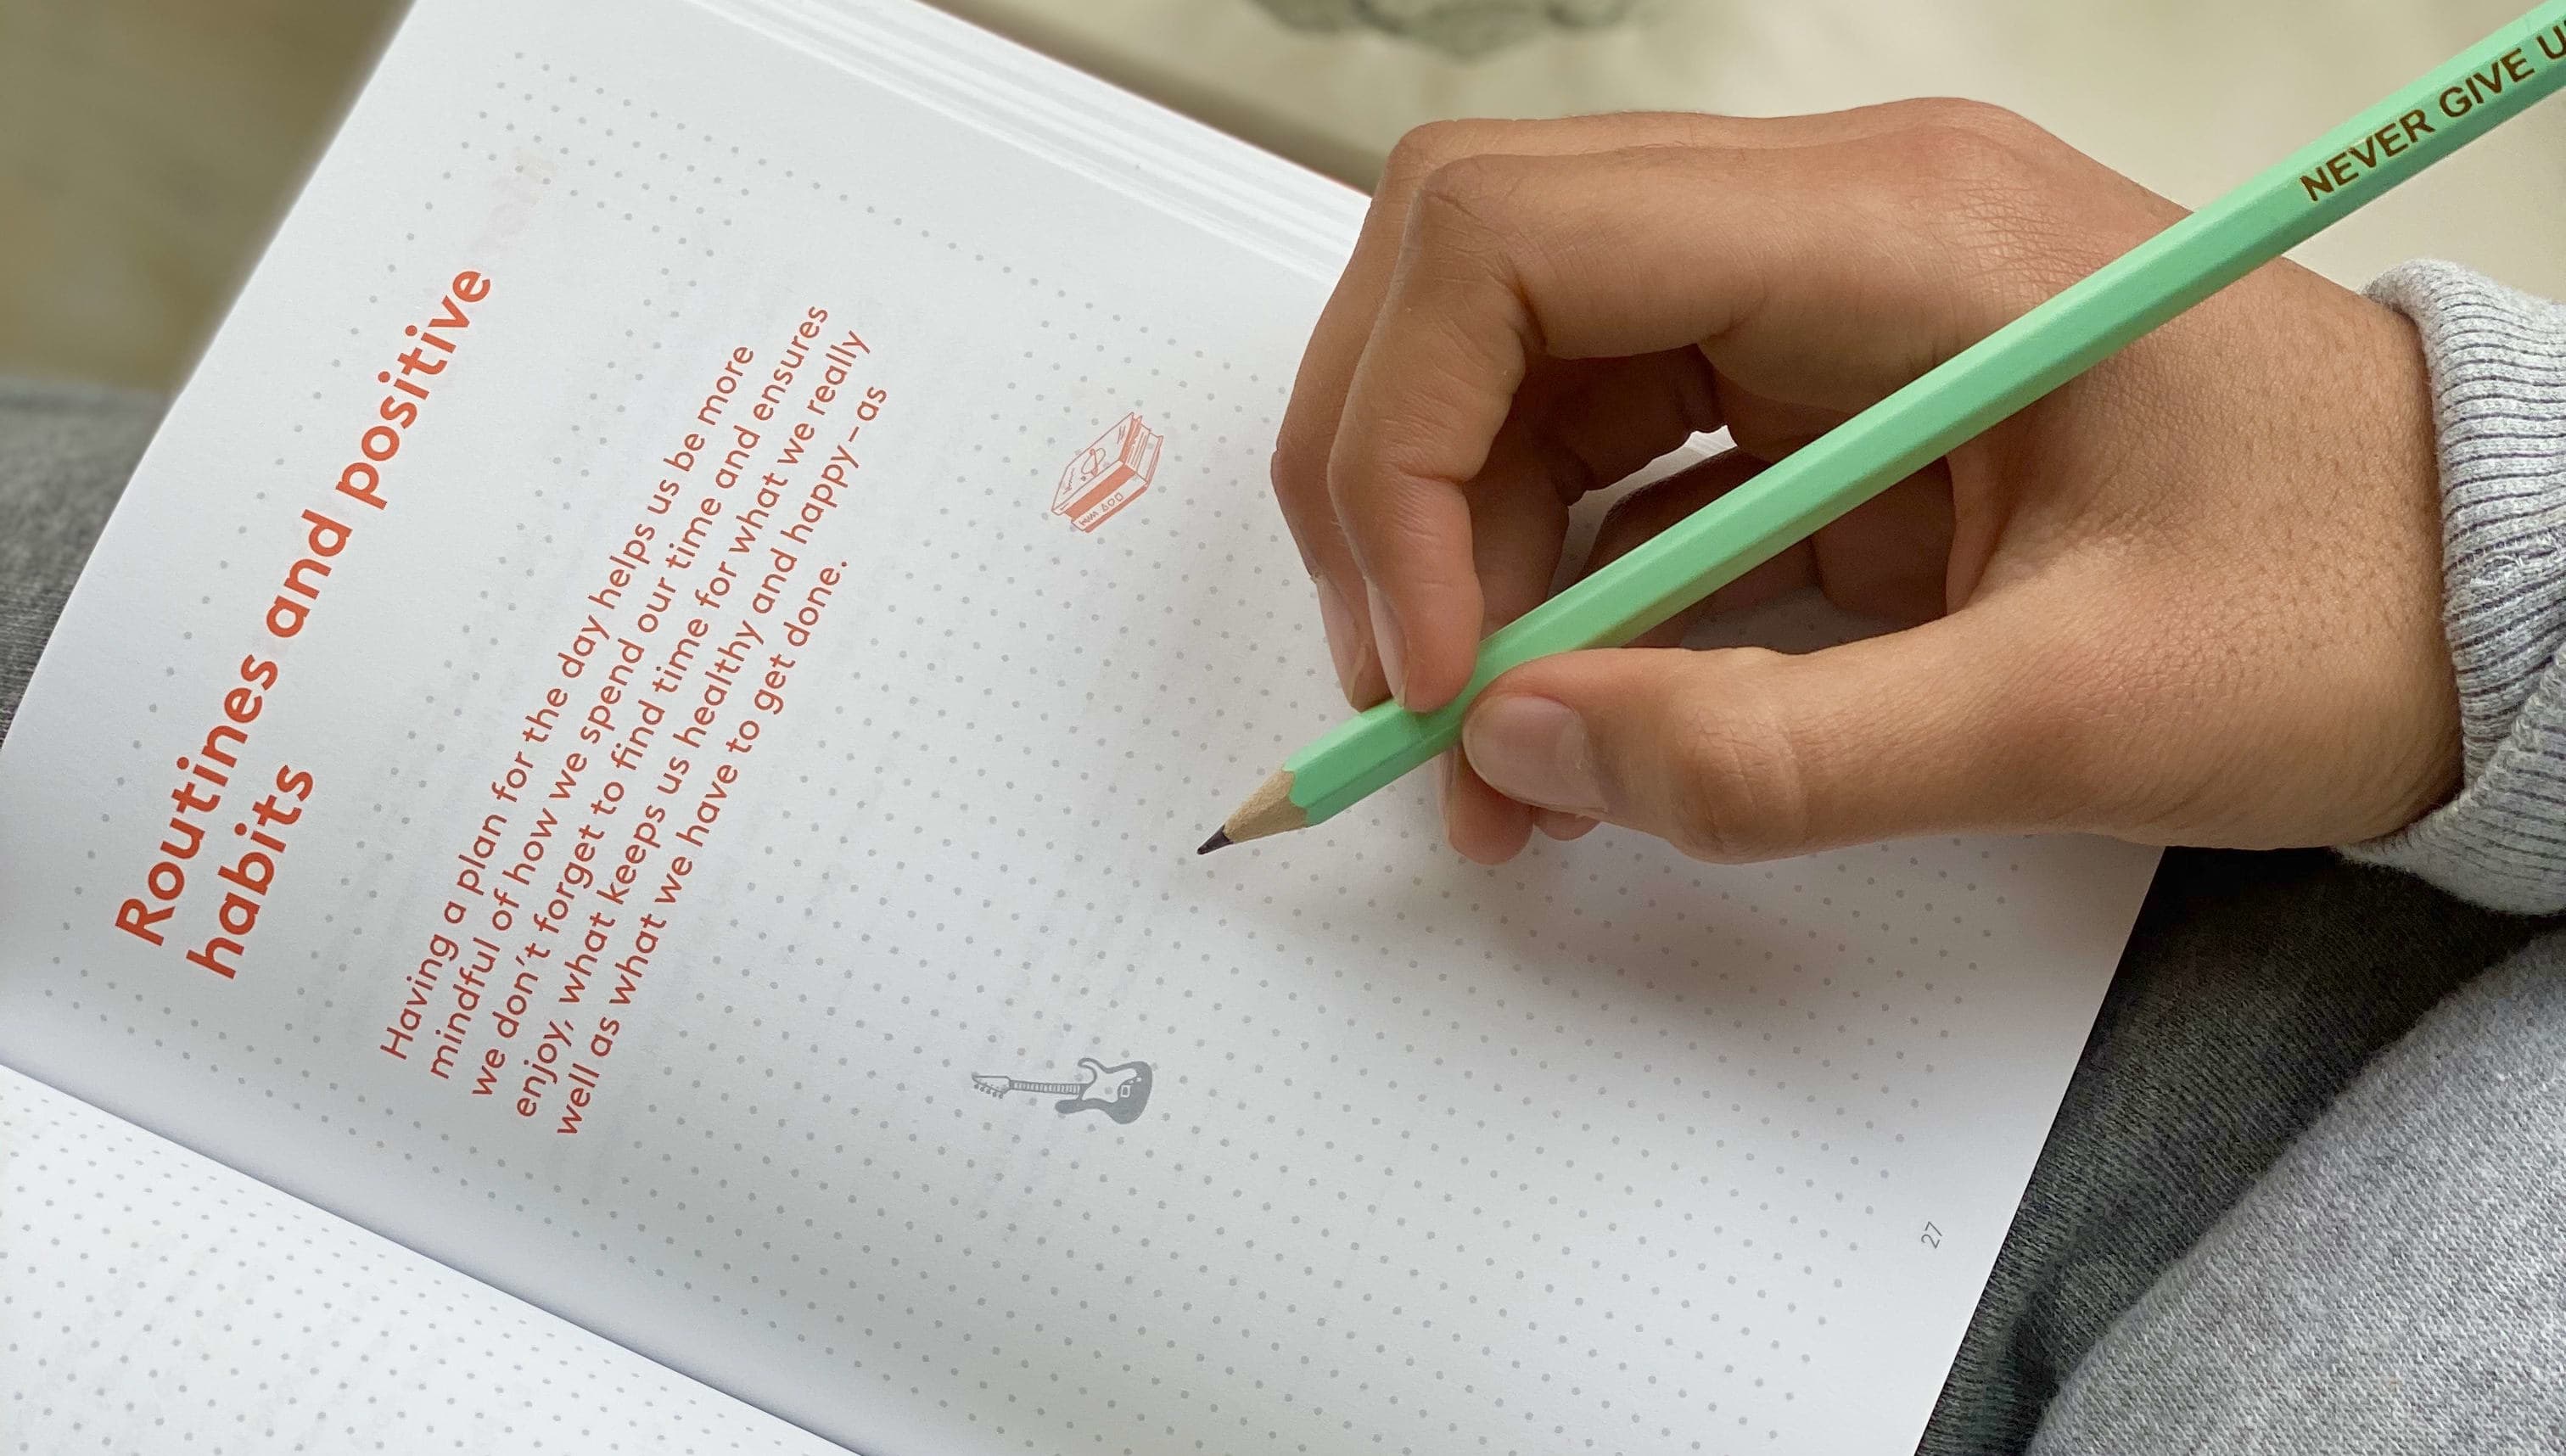 Routines and positive
habits
Having a plan for the day helps us be more
mindful of how we spend our time and ensures
we don't forget to find time for what we really
enjoy, what keeps us healthy and happy–as
well as what we have to get done.
27
NEVER GIVE U